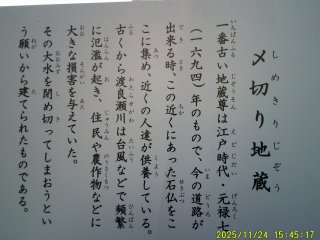 〆切り地蔵
しめきりじぞう
一番古い地蔵尊は江戸時代・元禄七
（一六九四）年のもので、今の道路が
出来る時、この近くにあった石仏をこ
こに集め、近くの人達が供養している。
古くから渡良瀬川は台風などで頻繁
に氾濫が起き、住民や農作物などに
大きな損害を与えていた。
その大水を閉め切ってしまおうとい
う願いから建てられたものである。
2025/11/24 15:45:17